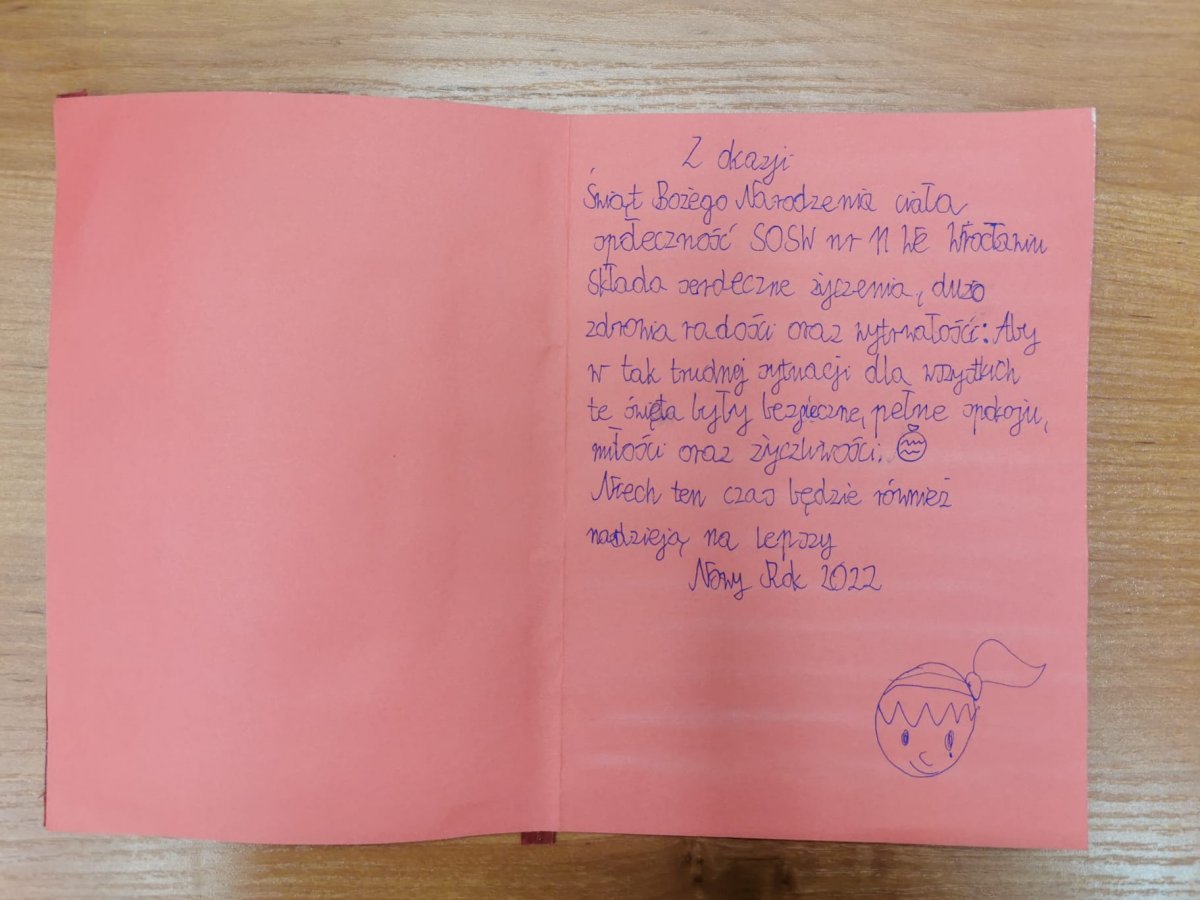 Z okazji
Świąt Bożego Narodzenia ciała
społeczność SOSW nr 11 WE Wrocławiu
Składa serdeczne życzenia, dużo
zdrowia radości oraz wytrwałości: Aby
w tak trudnej sytuacji dla wszystkich
te święta były bezpieczne, pełne spokoju,
miłości oraz życzliwości.
Niech ten czas będzie również
nadzieją na lepszy
Nowy Rok 2022